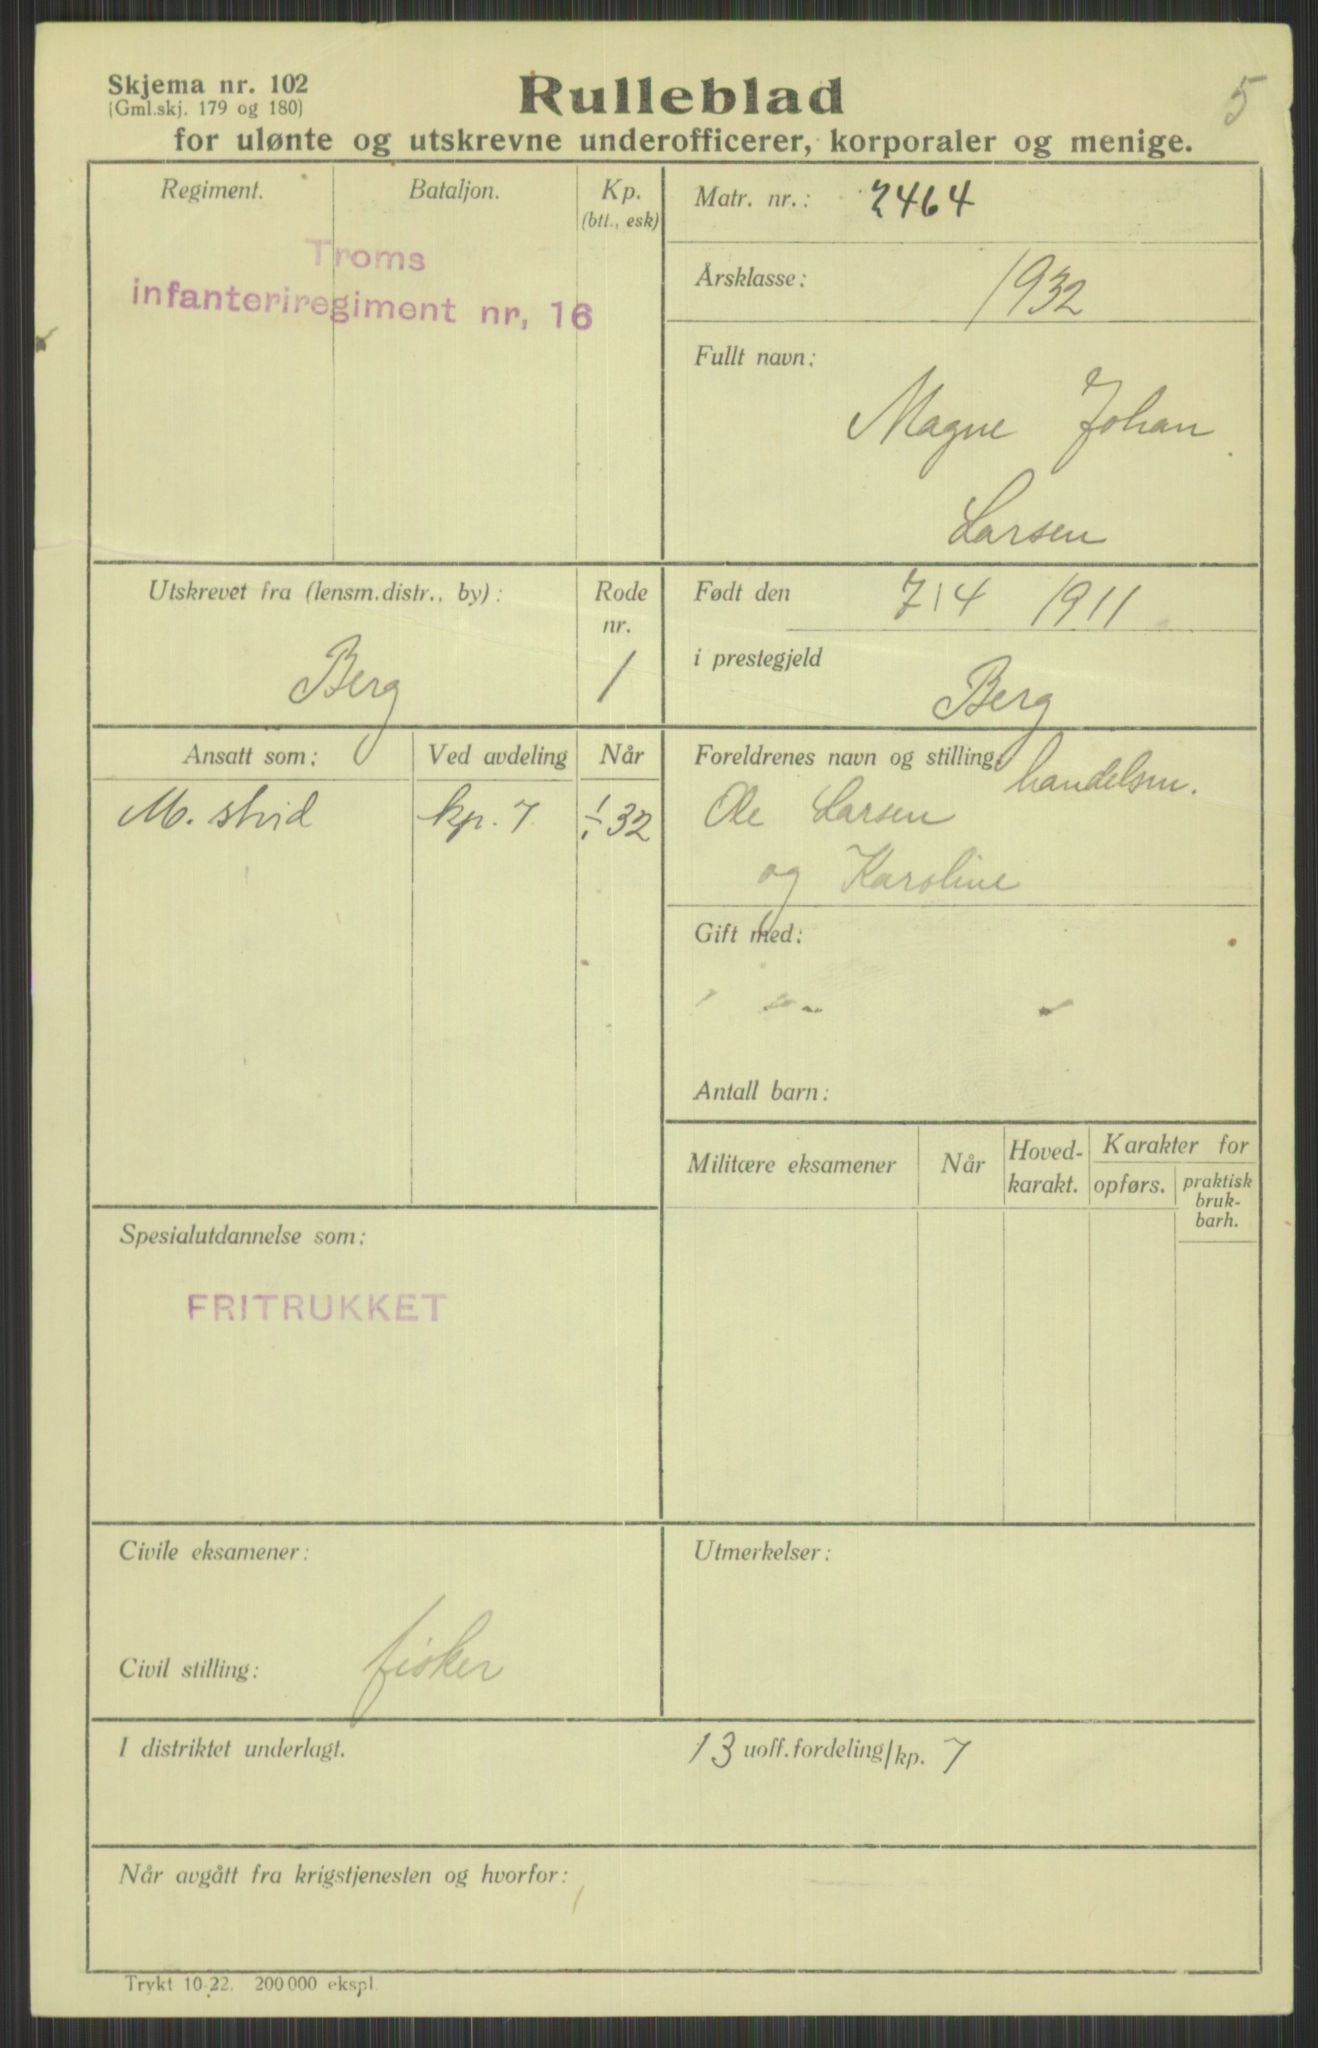 Skjema nr. 102
(Gml.skj. 179 og 180)
Rulleblad
5
for ulønte og utskrevne underofficerer, korporaler og menige.
Regiment.
Bataljon.
Kp.
(btl., esk)
Troms
infanteriregiment nr, 16
Matr. nr.: 2464
Årsklasse: 1932
Fullt navn:
Magne Johan
Larsen
Utskrevet fra (lensm.distr., by):
Berg
Rode
nr.
1
Født den 7/4 1911
i prestegjeld Berg
Ansatt som:
Ved avdeling
Når
M. strid
kp. 7
1/1 32
Foreldrenes navn og stilling:
handelsm.
Ole Larsen
og Karoline
Gift med:
Antall barn:
Militære eksamener
Når
Hoved-
karakt.
Karakter for
opførs.
praktisk
bruk-
barh.
Spesialutdannelse som:
FRITRUKKET
Civile eksamener:
Civil stilling: fisker
Utmerkelser:
I distriktet underlagt.
13 uoff.fordeling/kp. 7
Når avgått fra krigstjenesten og hvorfor:
Trykt 10.22. 200 000 ekspl.